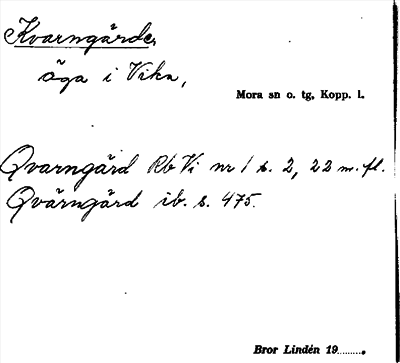 Kvarngärde,
äga i Vika,
Mora sn o. tg, Kopp. l.
Qvarngärd Rb Vi nr 1 s. 2, 22 m. fl.
Qvärngärd ib. s. 475.
Bror Lindén 19........